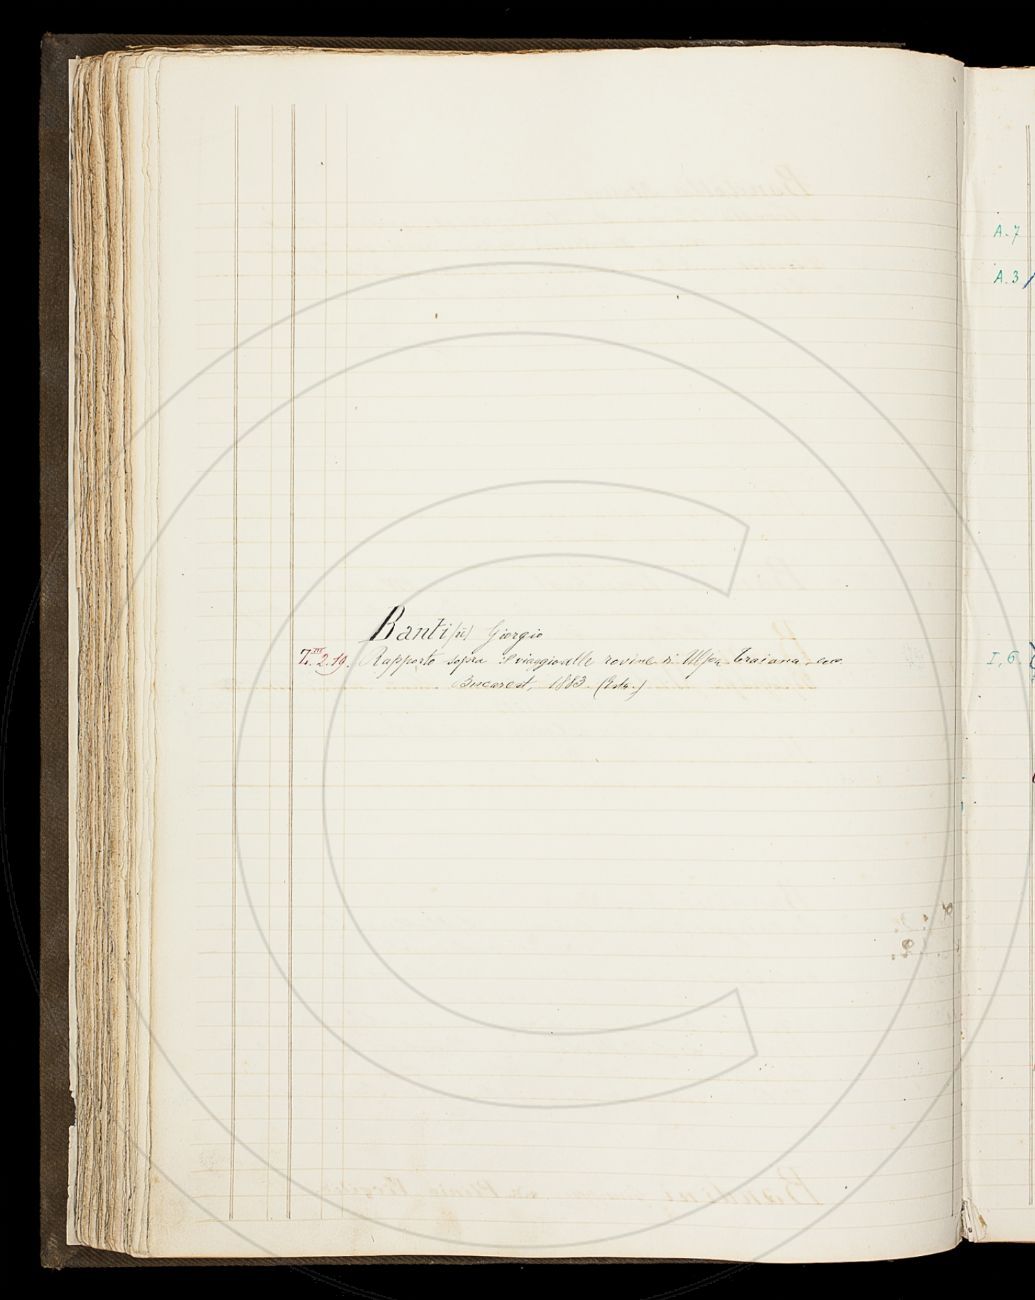 Banti(ü) Giorgio
7.III.2.19. Rapporto sopra il viaggio alle rovine di Ulpia Traiana ecc.
Bucarest, 1883. (Estr.)
A.7
A.3
I,6